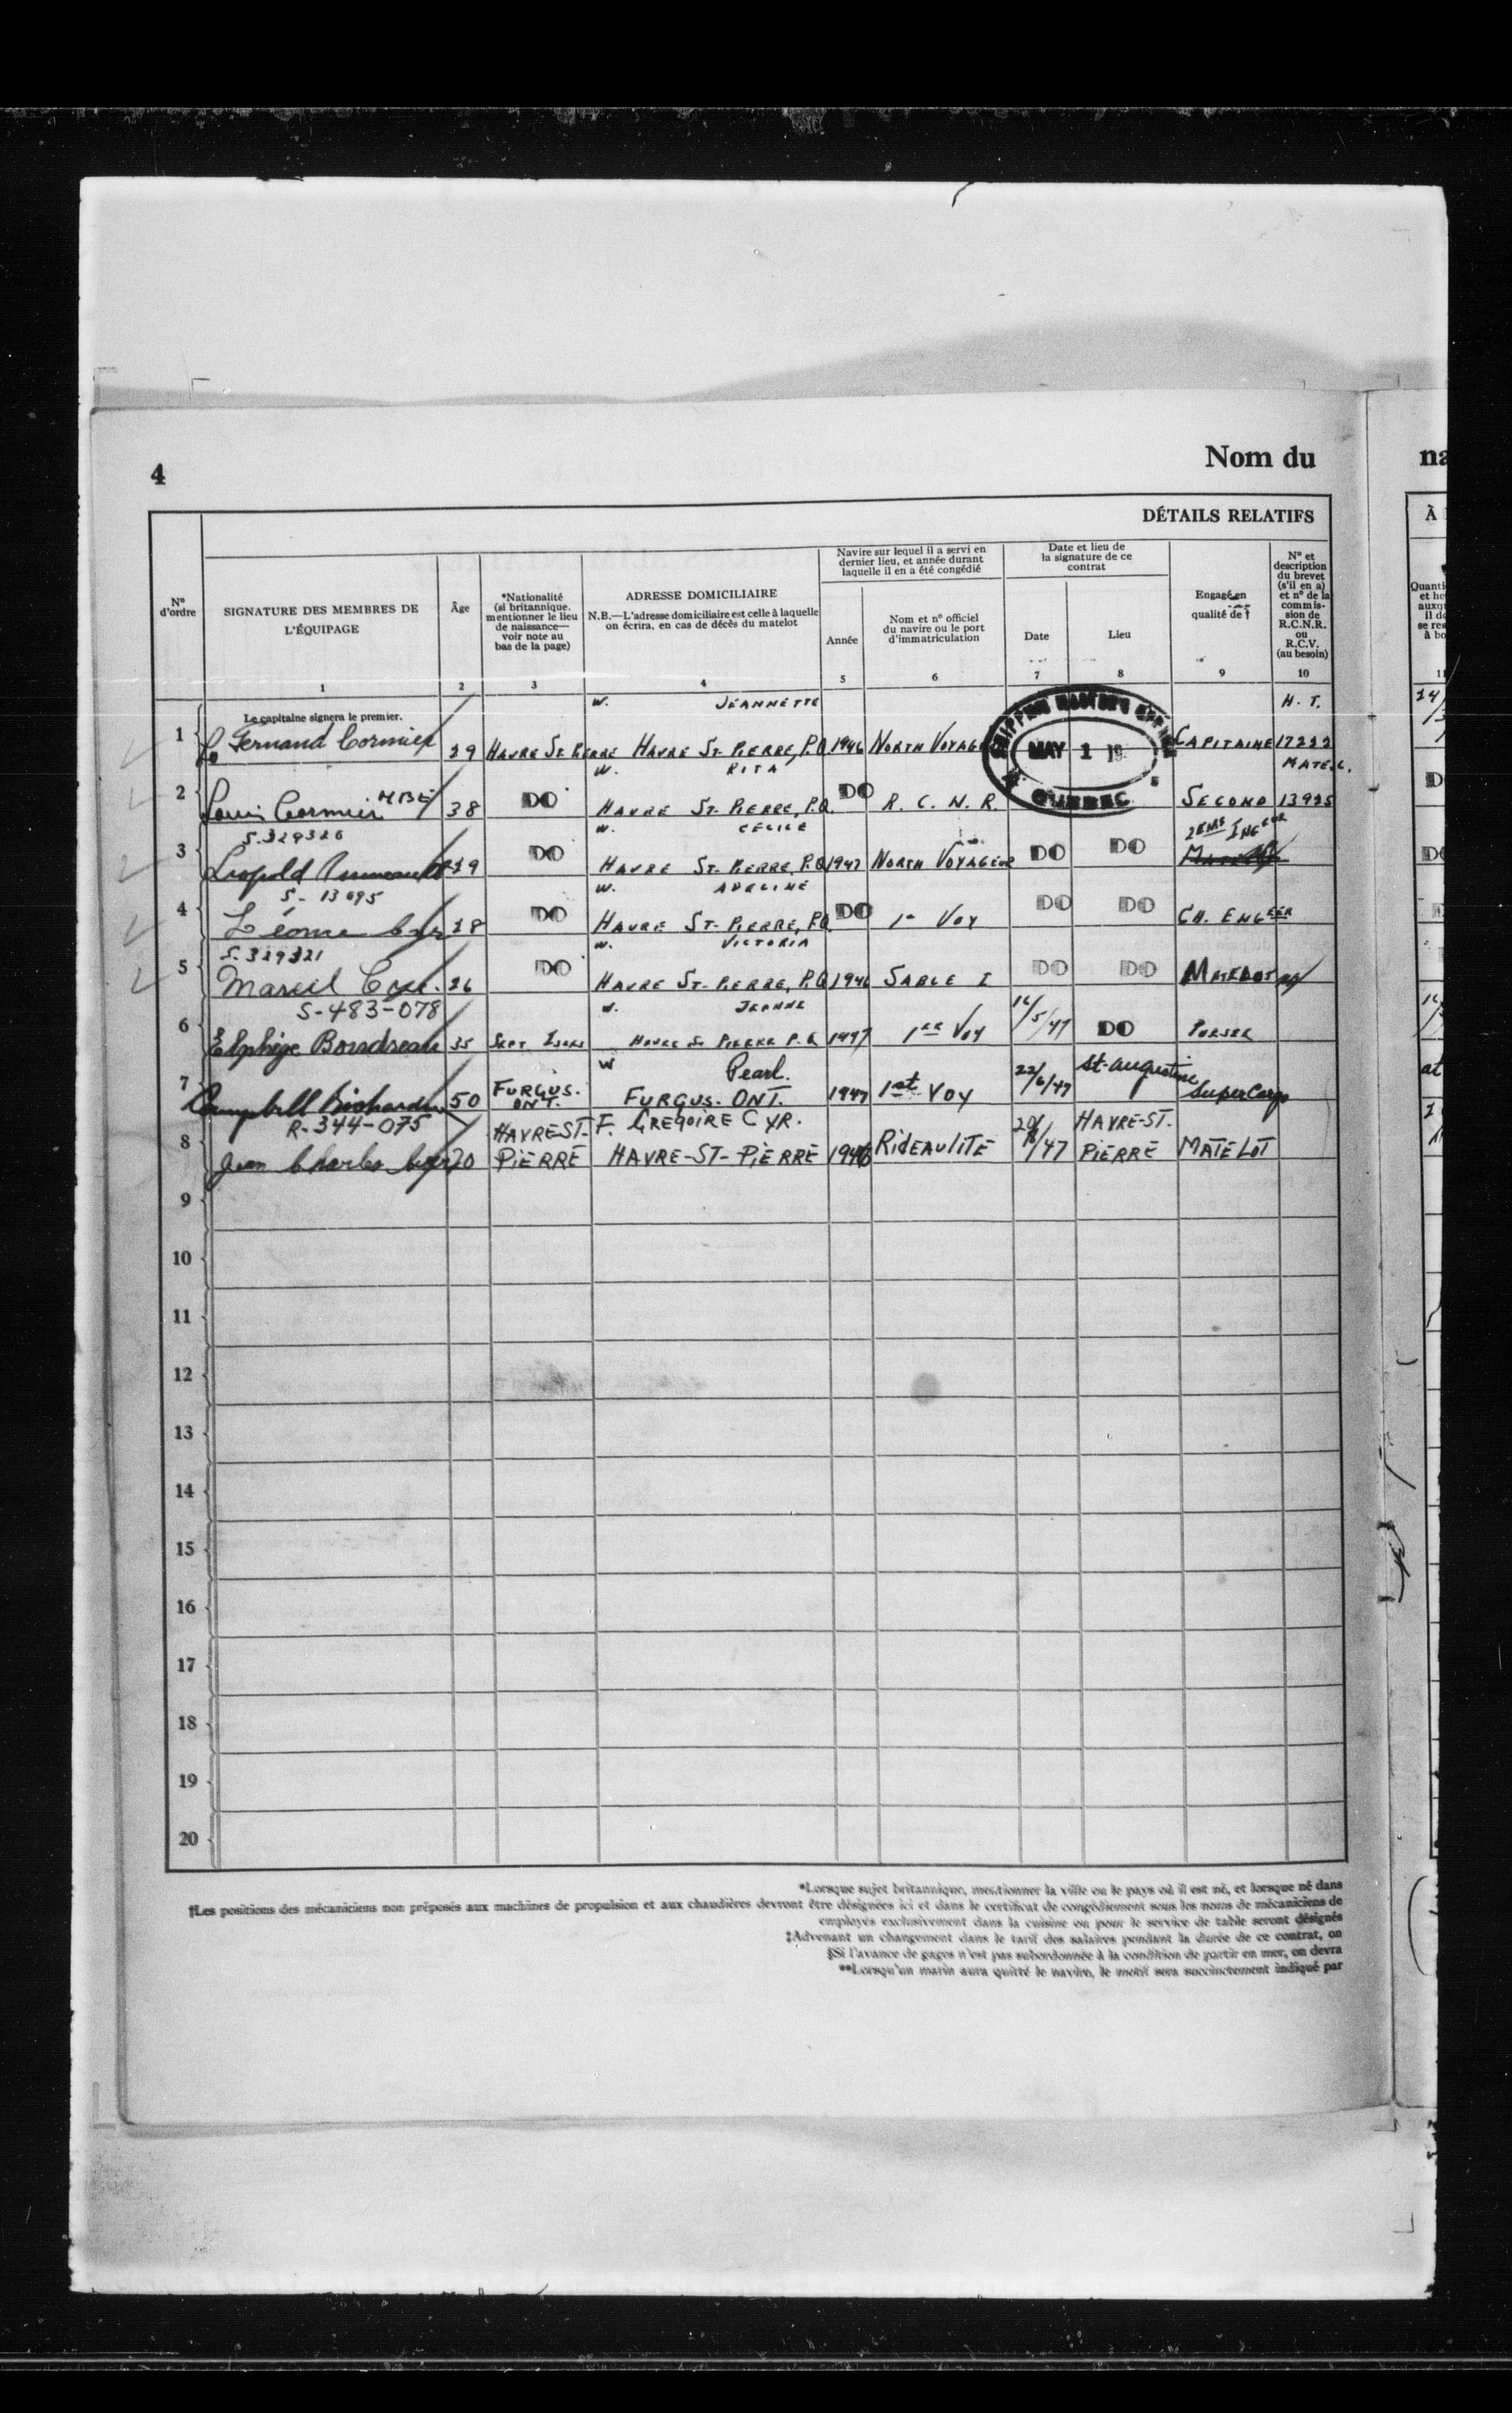 4
Nom du
na
DÉTAILS RELATIFS
À
N° d'ordre
SIGNATURE DES MEMBRES DE
L'ÉQUIPAGE
Âge
*Nationalité
(si britannique,
mentionner le lieu
de naissance—
voir note au
bas de la page)
ADRESSE DOMICILIAIRE
N.B.—L'adresse domiciliaire est celle à laquelle
on écrira, en cas de décès du matelot
Navire sur lequel il a servi en
dernier lieu, et année durant
laquelle il en a été congédié
Année
Nom et n° officiel
du navire ou le port
d'immatriculation
Date et lieu de
la signature de ce
contrat
Date
Lieu
Engagé en
qualité de †
N° et
description
du brevet
(s'il en a)
et n° de la
commis-
sion de
R.C.N.R.
ou
R.C.V.
(au besoin)
1 2 3 4 5 6 7 8 9 10
Le capitaine signera le premier.
W. JEANNETTE H. T.
1 Fernand Cormier 29 HAVRE ST. PIERRE HAVRE ST-PIERRE, P.Q. 1946 NORTH VOYAGE CAPITAINE 17222
SHIPPING MASTER'S OFFICE
MAY 1 19
QUEBEC
W. RITA
2 Louis Cormier MBE 38 DO HAVRE ST-PIERRE, P.Q. DO R. C. N. R. SECOND 13925
S.329326 W. CECILE
3 Leopold 29 DO HAVRE ST-PIERRE, P.Q. 1947 NORTH VOYAGEUR DO DO 2EME INGEUR
S-13095 W. ADELINE
4 DO HAVRE ST-PIERRE, P.Q. DO 1er VOY DO DO CH. ENGEER
S.329321 W. VICTORIA
5 Marcil Cyr. 26 DO HAVRE ST-PIERRE, P.Q. 1946 SABLE I DO DO MATELOT
S-483-078 W. JEANNE
6 Elphège Boudreau 35 SEPT ISLES HAVRE ST PIERRE P.Q. 1947 1er VOY 16/5/47 DO PURSER
W Pearl.
7 Campbell 50 FURGUS. ONT. FURGUS. ONT. 1947 1st VOY 22/6/47 St-Augustine SuperCargo
R-344-075 F. GREGOIRE CYR.
8 Jean Charles Cyr 20 HAVRE-ST-PIERRE HAVRE-ST-PIERRE 1946 RIDEAULITE HAVRE-ST-PIERRE MATELOT
9
10
11
12
13
14
15
16
17
18
19
20
*Lorsque sujet britannique, mentionner la ville ou le pays où il est né, et lorsque né dans
†Les positions des mécaniciens non préposés aux machines de propulsion et aux chaudières devront être désignées ici et dans le certificat de congédiement sous les noms de mécaniciens de
employés exclusivement dans la cuisine ou pour le service de table seront désignés
‡Advenant un changement dans le tarif des salaires pendant la durée de ce contrat, on
§Si l'avance de gages n'est pas subordonnée à la condition de partir en mer, on devra
**Lorsqu'un marin aura quitté le navire, le motif sera succinctement indiqué par